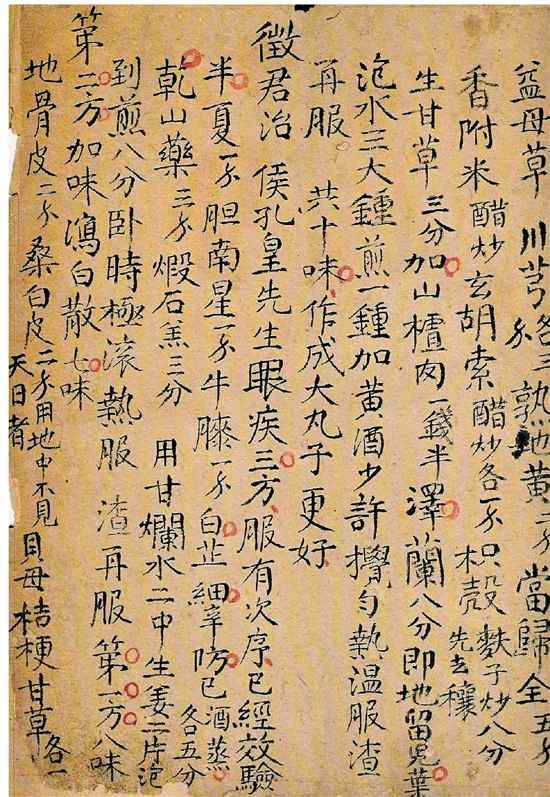 益母草 川芎各三分 熟地黄二分 當歸全五分
香附米醋炒 玄胡索醋炒各一分 枳殼麩子炒八分先去穰
生甘草三分 加山楂肉一錢半 澤蘭八分即地留兒葉
泡水三大鍾煎一鍾加黄酒少許攪匀熱温服渣
再服 共十味作成大丸子更好
徵君治 侯孔皇先生眼疾三方服有次序已經效驗
半夏一分 胆南星一分 牛膝一分 白芷 細辛 防已酒蒸各五分
乾山藥三分 煅石羔三分 用甘爛水二中生姜二片泡
到煎八分卧時極滚熱服 渣再服 第一方八味
第二方加味瀉白散七味
地骨皮二分 桑白皮二分用地中不見天日者 貝母 桔梗 甘草各一